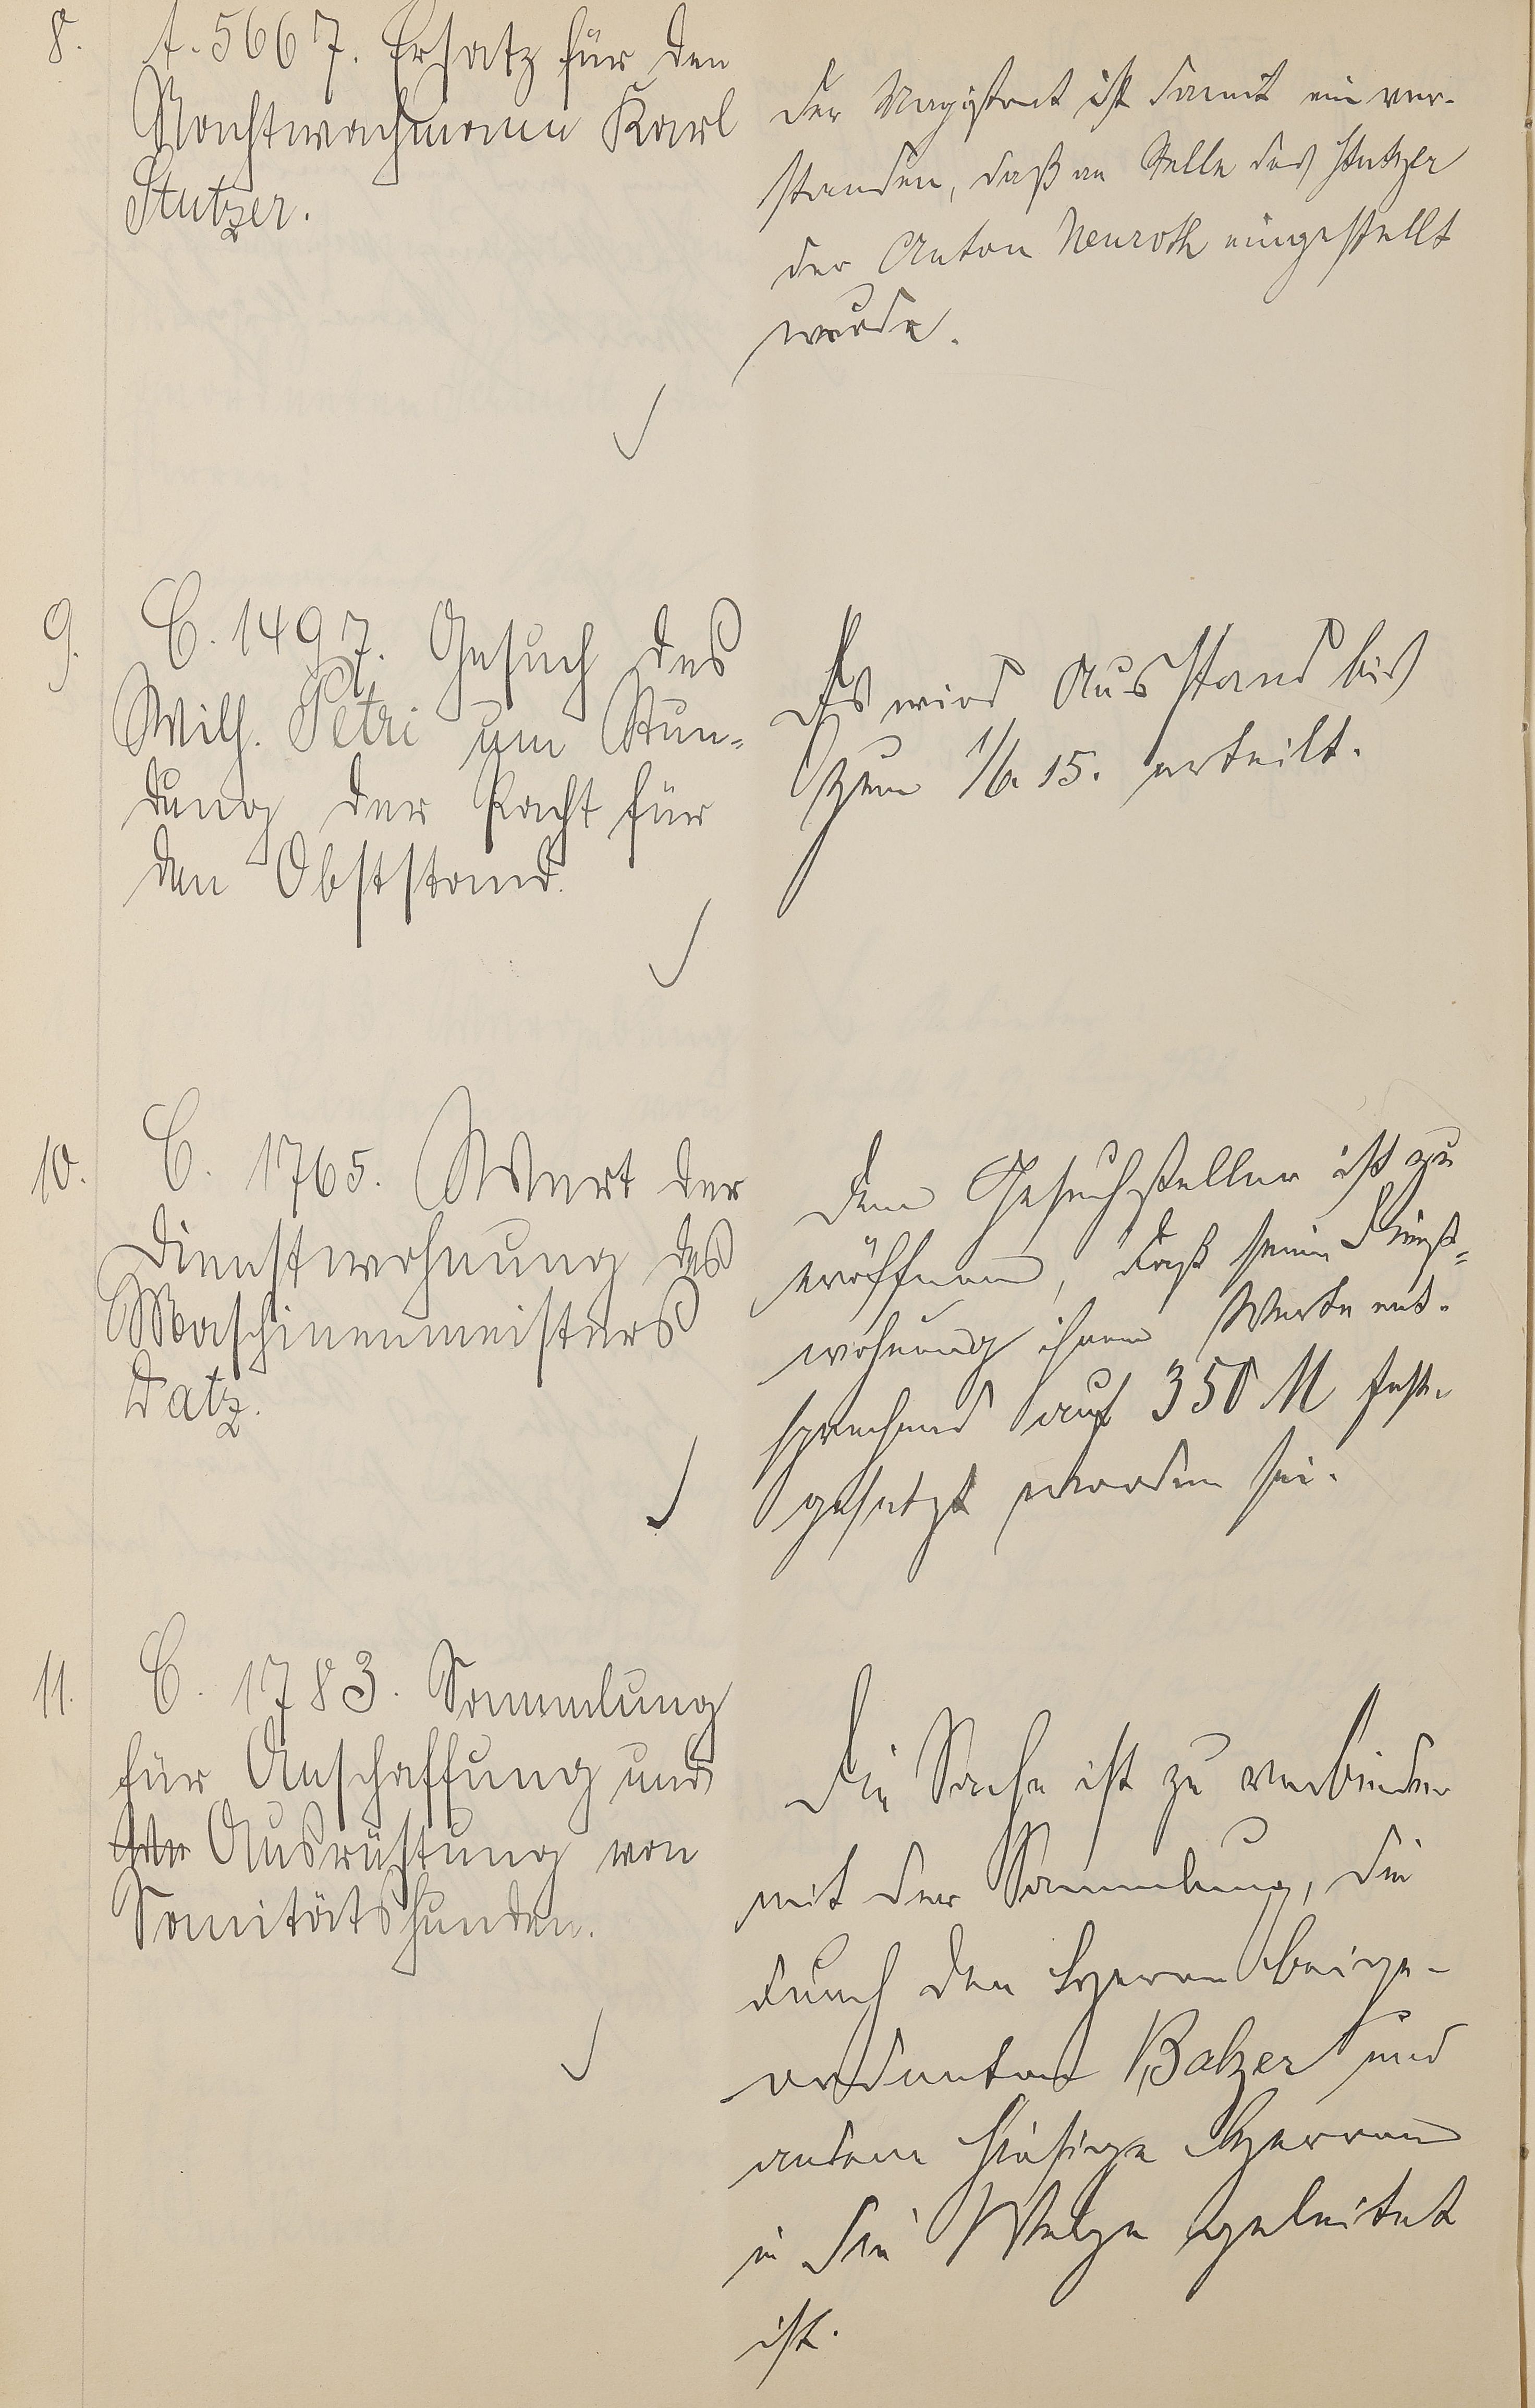 8.
A. 5667. Ersatz für den
Nachtwachmann Karl
Stutzer.
Der Magistrat ist damit einver-
standen, daß an Stelle des Stutzer
der Anton Neuroth eingestellt
wurde.
9.
C. 1497. Gesuch des
Wilh. Petri um Stun-
dung der Pacht für
den Obststand.
Es wird Ausstand bis
zum 1/6 15. erteilt.
10.
C. 1765. Wert der
Dienstwohnung des
Maschinenmeisters
Datz.
Dem Gesuchsteller ist zu
eröffnen, daß seine Dienst-
wohnung ihrem Werte ent-
sprechend auf 350 M fest-
gesetzt worden sei.
11.
C. 1783. Sammlung
für Anschaffung und
Ausrüstung von
Sanitätshunden.
Die Sache ist zu verbinden
mit der Sammlung, die
durch den Herrn Beige-
ordneten Balzer und
andere hiesige Herren
in die Wege geleitet
ist.